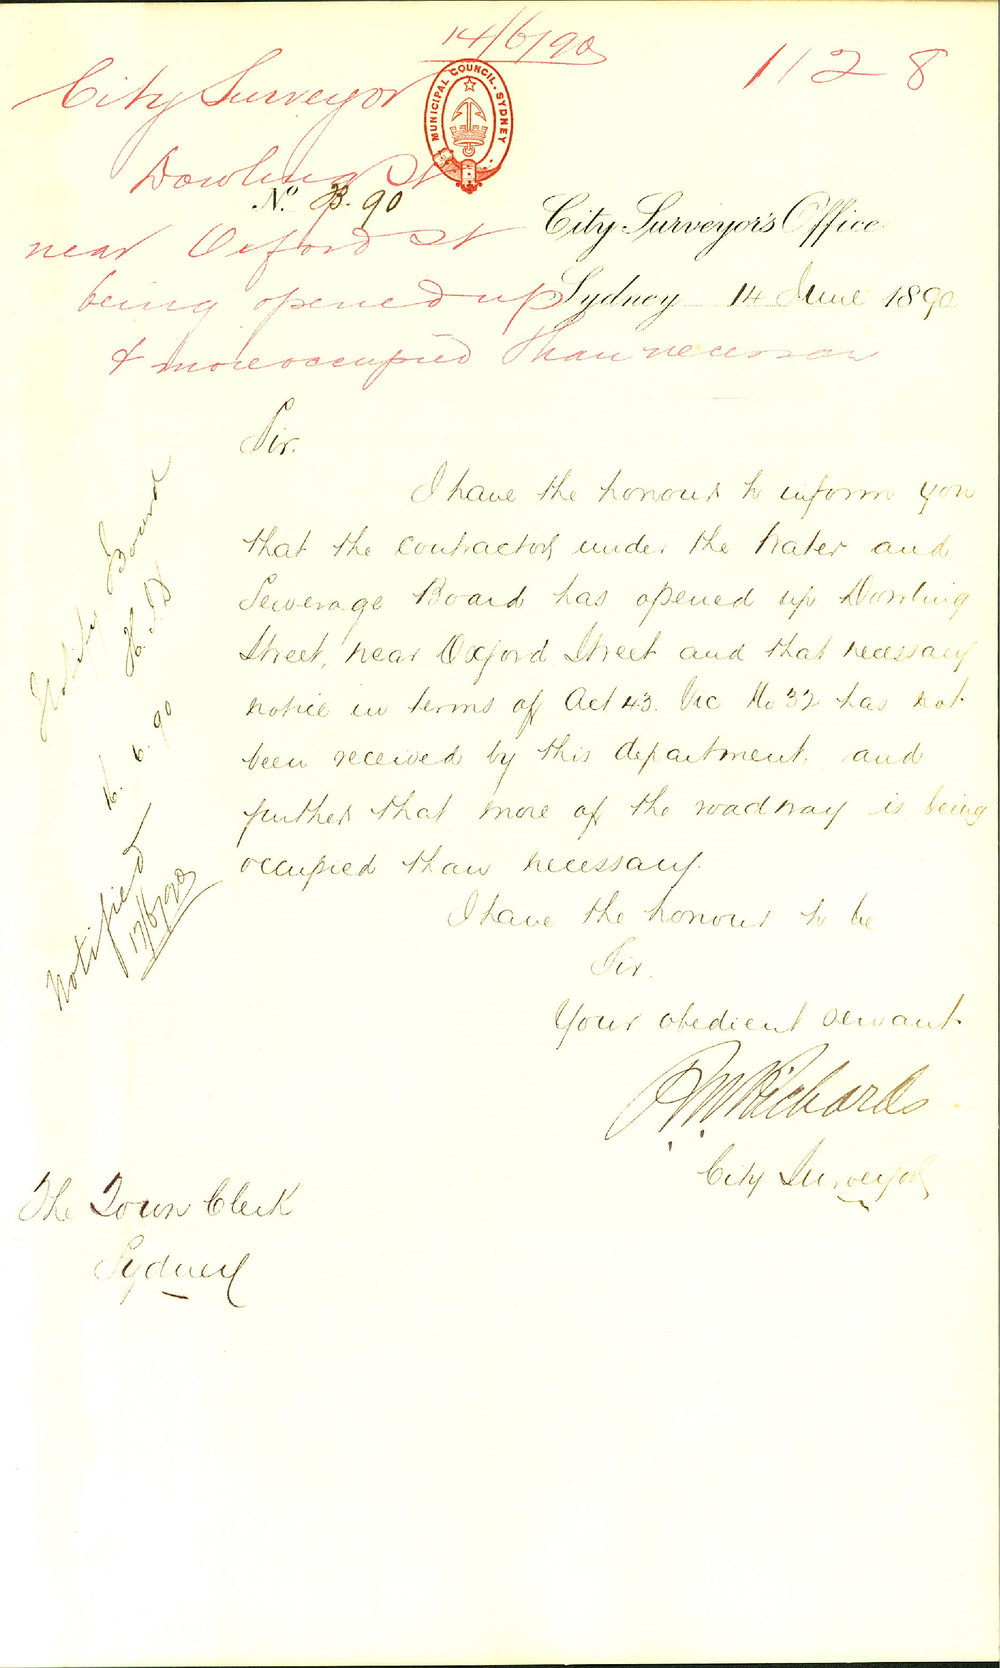 14/6/90
1128
City Surveyor
MUNICIPAL COUNCIL. SYDNEY
Dowling St
No. B. 90
near Oxford St
City Surveyor's Office
being opened up
Sydney 14 June 1890
& more occupied than necessary
Sir.
I have the honour to inform you
that the contractor under the Water and
Sewerage Board has opened up Dowling
Street, near Oxford Street and that necessary
notice in terms of Act 43. Vic No 32 has not
been received by this department, and
further that more of the roadway is being
occupied than necessary.
I have the honour to be
Sir.
Your obedient servant.
Richards
City Surveyor
The Town Clerk
Sydney
Notify Board
6. 90
Notified
17/6/90